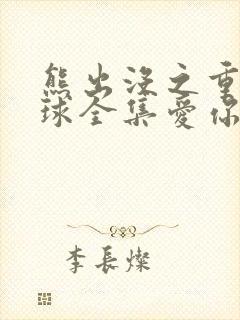 熊出没之重
球全集爱你
李长灿